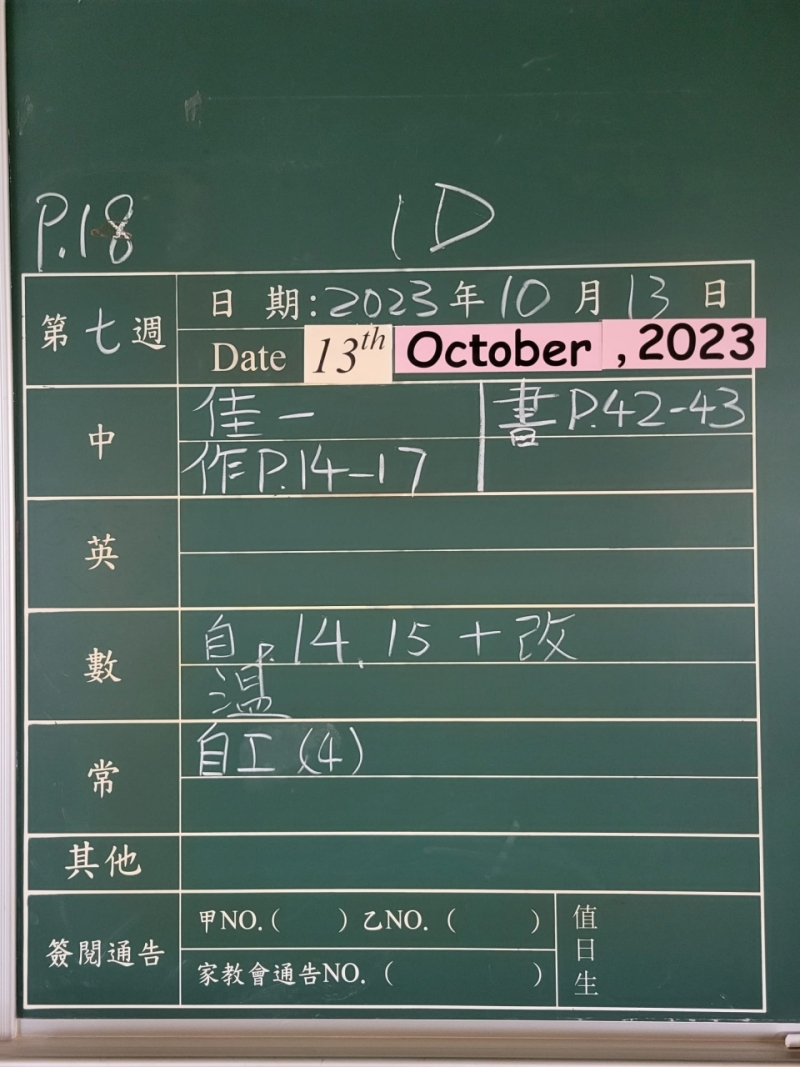 P.18 1D
第七週
日 期:2023年10月13日
Date 13th October ,2023
中
佳一
書P.42-43
作P.14-17
英
數
自P.14.15+改
溫
常
自工(4)
其他
簽閱通告
甲NO.( )乙NO.( )
家教會通告NO.( )
值日生